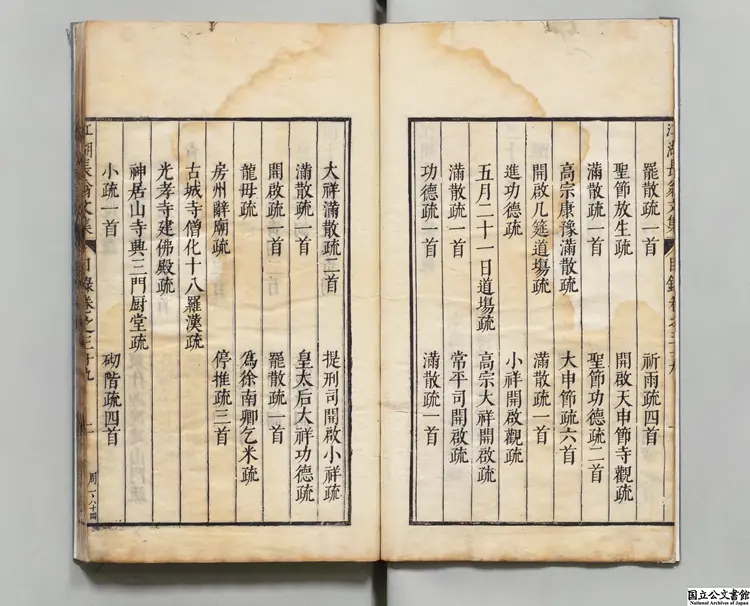 江湖長翁文集 目錄卷之三十九
罷散疏一首 祈雨疏四首
聖節放生疏 開啟天申節寺觀疏
滿散疏一首 聖節功德疏二首
高宗康豫滿散疏 大申節疏六首
開啟几筵道塲疏 滿散疏一首
進功德疏 小祥開啟觀疏
五月二十一日道塲疏 高宗大祥開啟疏
滿散疏一首 常平司開啟疏
功德疏一首 滿散疏一首
大祥滿散疏二首 提刑司開啟小祥疏
滿散疏一首 皇太后大祥功德疏
開啟疏一首 罷散疏一首
龍母疏 爲徐南卿乞米疏
房州辭廟疏 停推疏三首
古城寺僧化十八羅漢疏
光孝寺建佛殿疏
神居山寺興三門厨堂疏
小疏一首 砌階疏四首
江湖長翁文集 目錄卷之三十九
国立公文書館
National Archives of Japan